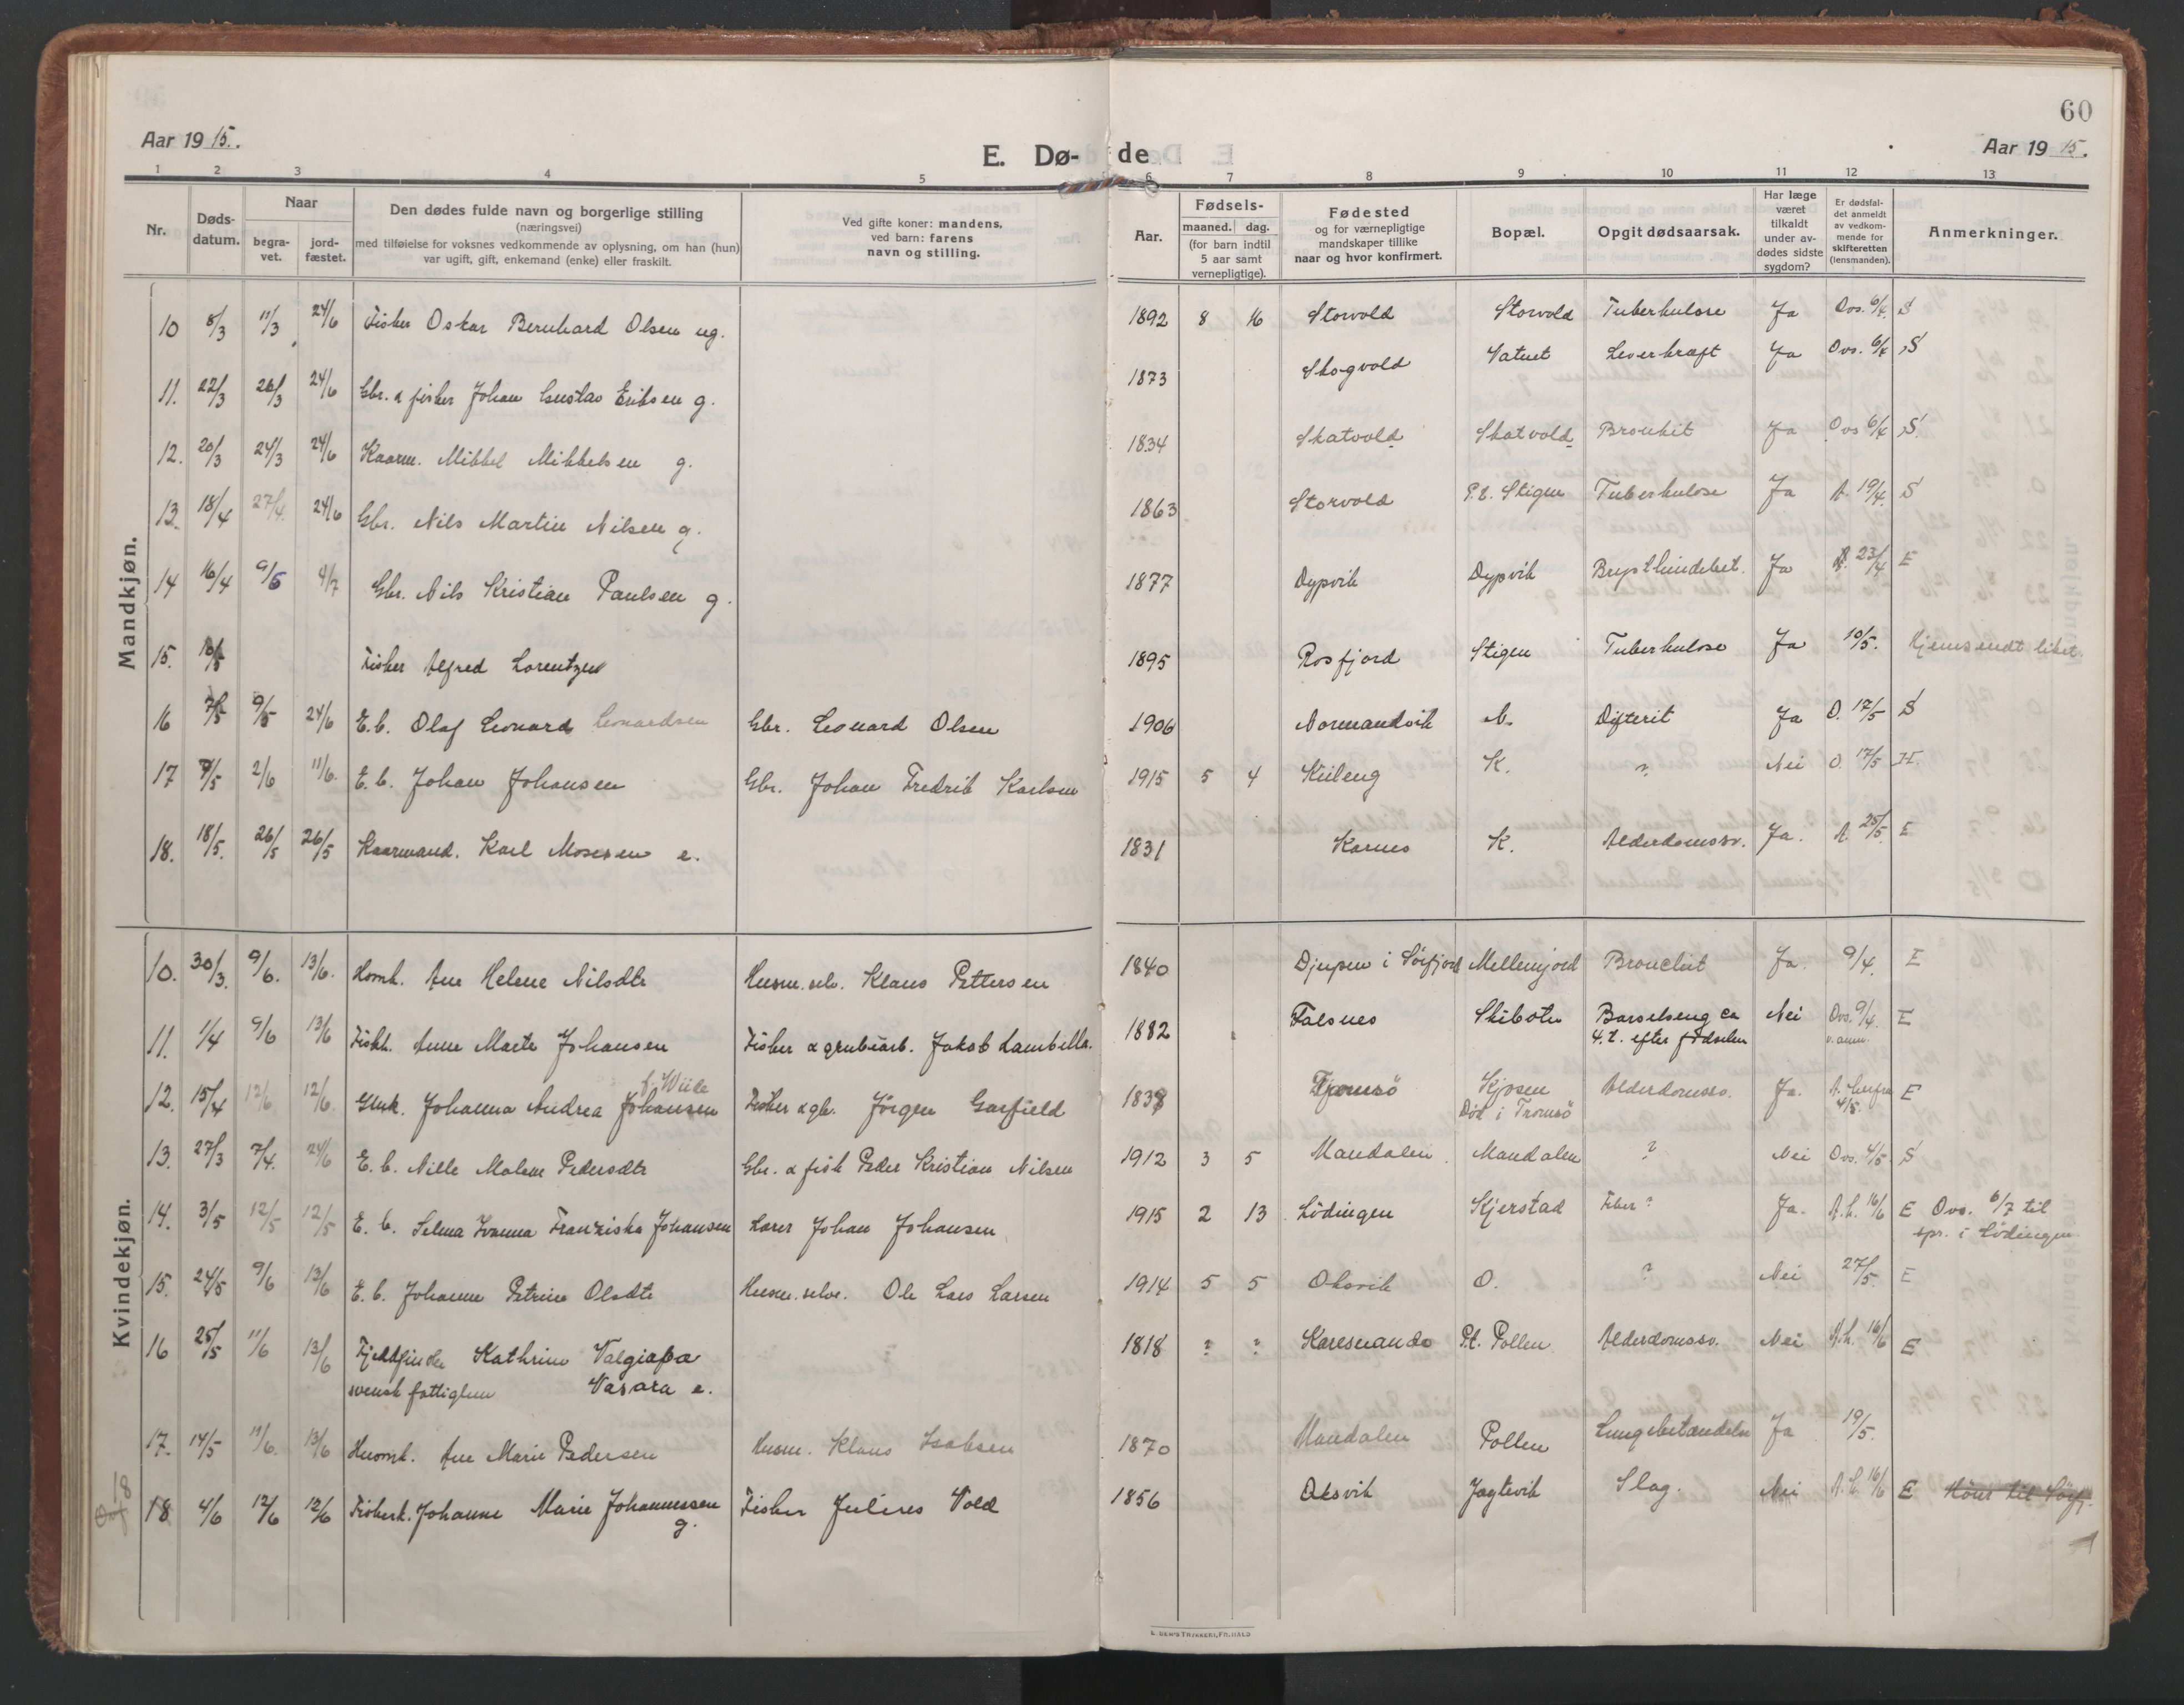 60
Aar 1915. E. Dø- de Aar 1915.
1 2 3 4 5 6 7 8 9 10 11 12 13
Nr. Døds-datum. Naar begra-vet. jord-fæstet. Den dødes fulde navn og borgerlige stilling (næringsvei) med tilføielse for voksnes vedkommende av oplysning, om han (hun) var ugift, gift, enkemand (enke) eller fraskilt. Ved gifte koner: mandens, ved barn: farens navn og stilling. Aar. Fødsels- maaned. dag. (for barn indtil 5 aar samt vernepligtige). Fødested og for værnepligtige mandskaper tillike naar og hvor konfirmert. Bopæl. Opgit dødsaarsak. Har læge været tilkaldt under av-dødes sidste sygdom? Er dødsfal-det anmeldt av vedkom-mende for skifteretten (lensmanden). Anmerkninger.
Mandkjøn.
10 8/3 11/3 24/6 Fisker Oskar Bernhard Olsen ug. 1892 8 16 Storvold Storvold Tuberkulose Ja Ovs. 6/4. S
11. 22/3 26/3 24/6 Gbr. & fisker Johan Gustav Eriksen g. 1873 Skogvold Vatnet Leverkræft Ja Ovs. 6/4 S
12. 20/3 24/3 24/6 Kaarm. Mikkel Mikkelsen g. 1834 Skatvold Skatvold Bronkit Ja Ovs 6/4 S
13. 18/4 27/4. 24/6 Gbr. Nils Martin Nilsen g. 1863 Storvold P.t. Stigen Tuberkulose Ja A. 19/4. S
14 16/4 9/5 4/7 Gbr. Nils Kristian Paulsen g. 1877 Dypvik Dypvik Brysthindebet. Ja A. 23/4 E
15. Fisker Alfred Lorentzen 1895 Rosfjord Stigen Tuberkulose Ja 10/5. Hjemsendt liket.
16 7/5 9/5 24/6 E.b. Olaf Leonard Leonardsen Gbr. Leonard Olsen 1906 Normandvik N. Difterit Ja O. 17/5 S
17 9/5 2/6 11/6. E.b. Johan Johansen Gbr. Johan Fredrik Karlsen 1915 5 4 Kileng K. ? Nei O. 17/5 H.
18. 18/5. 26/5 26/5 Kaarmand. Karl Mosesen e. 1831 Karnes K. Alderdomssv. Ja. A 25/5. E
Kvindekjøn.
10. 30/3. 9/6. 13/6. Homk. Ane Helene Nilsdtr Husm. selv. Klaus Pettersen 1840 Djupen i Sörfjord Mellemjord Bronchit Ja. 9/4. E
11. 1/4 9/6 13/6 Fiskk. Anne Marte Johansen Fisker & grubearb. Jakob Lambella. 1882 Falsnes Skibotn Barselseng ca Nei Ovs. 9/4. E
4. t. efter fødselen
12. 15/4 12/6 12/6. f. Wiide
Gmk. Johanna Andrea Johansen Fisker & gb. Jörgen Garfield 1838 Tromsö Kjosen Alderdomssv. Ja. A. herfra 4/5. E
Död i Tromsö
13. 27/3 7/4. 24/6 E.b. Nille Malene Pedersdtr Gbr. & fisk Peder Kristian Nilsen 1912 3 5 Mandalen Mandalen ? Nei Ovs. 4/5. S
14. 3/5 12/5 12/5 E.b. Selma Ivanna Franziska Johansen Lærer Johan Johansen 1915 2 13 Lödingen Kjerstad Feber? Ja. A.h. 16/6 E Ovs. 6/7 til
spr. i Lödingen
15. 24/5 9/6 13/6 E.b. Johanne Petrine Olsdtr Husm. selve. Ole Lars Larsen 1914 5 5 Oksvik O. ? Nei 27/5 E
16 25/5 11/6 13/6 Fjeldfinske Kathrine Valgiapa 1818 ? ? Karesuando P.t. Pollen Alderdomssv. Nei A.h. 16/6 E
svensk fattiglem Vasara e.
17. 14/5 11/6. 13/6 Husmk. Ane Marie Pedersen Husm. Klaus Isaksen 1870 Mandalen Pollen Lungebetændelse Ja 19/5.
18 4/6 12/6 12/6 Fiskerk. Johanne Marie Johannessen g. Fisker Julius Vold 1856 Oksvik Jægtevik Slag. Nei A.h. 16/6 E
E. SEM'S TRYKKERI, FR.HALD